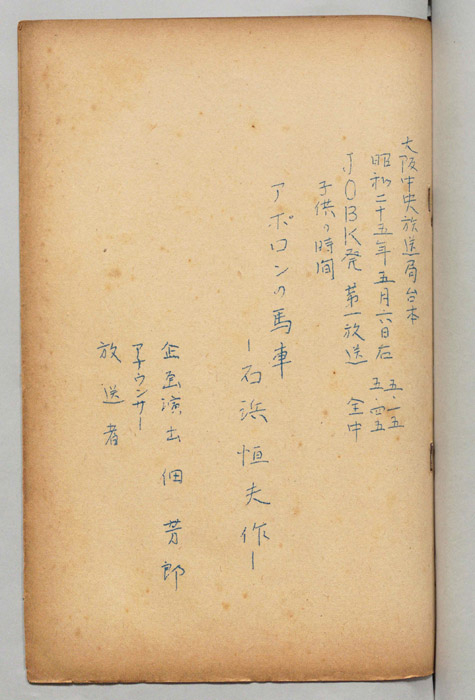 大阪中央放送局台本
昭和二十五年五月六日 五・一五
五・四五
JOBK発 第一放送 全中
子供の時間
アポロンの馬車
―石浜恒夫作―
企画演出 佃 芳郎
アナウンサー
放送者